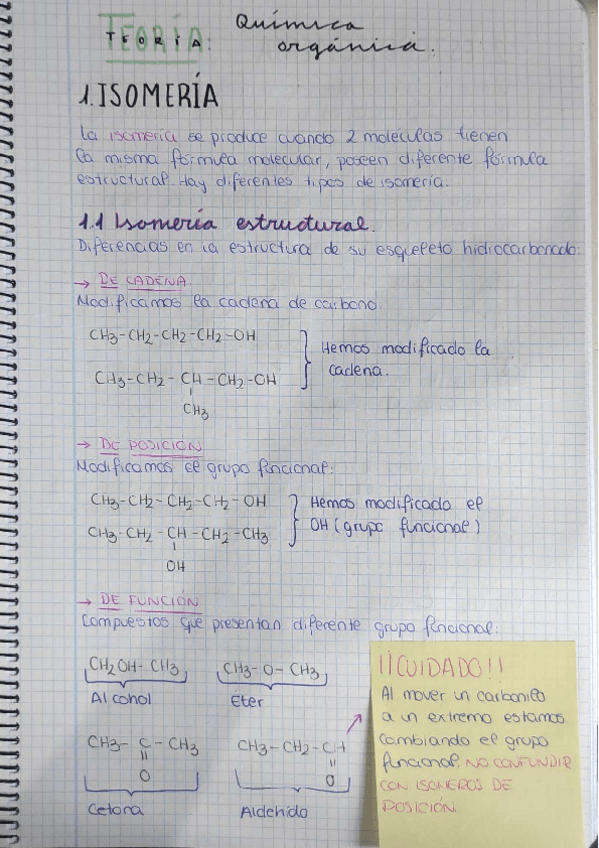 TEORÍA: Química
orgánica.
1. ISOMERÍA
La isomería se produce cuando 2 moléculas tienen
la misma fórmula molecular, poseen diferente fórmula
estructural. Hay diferentes tipos de isomería.
1.1 Isomería estructural.
Diferencias en la estructura de su esqueleto hidrocarbonado:
→ DE CADENA
Modificamos la cadena de carbono.
CH3-CH2-CH2-CH2-OH
Hemos modificado la
cadena.
CH3-CH2-CH-CH2-OH
CH3
→ DE POSICIÓN
Modificamos el grupo funcional:
CH3-CH2-CH2-CH2-OH
Hemos modificado el
OH (grupo funcional)
CH3-CH2-CH-CH2-CH3
OH
→ DE FUNCIÓN
Compuestos que presentan diferente grupo funcional:
CH2OH-CH3 CH3-O-CH3
Alcohol Éter
CH3-C-CH3 CH3-CH2-CH
O O
Cetona Aldehído
¡¡CUIDADO!!
Al mover un carbonilo
a un extremo estamos
cambiando el grupo
funcional NO CONFUNDIR
CON ISOMEROS DE
POSICIÓN